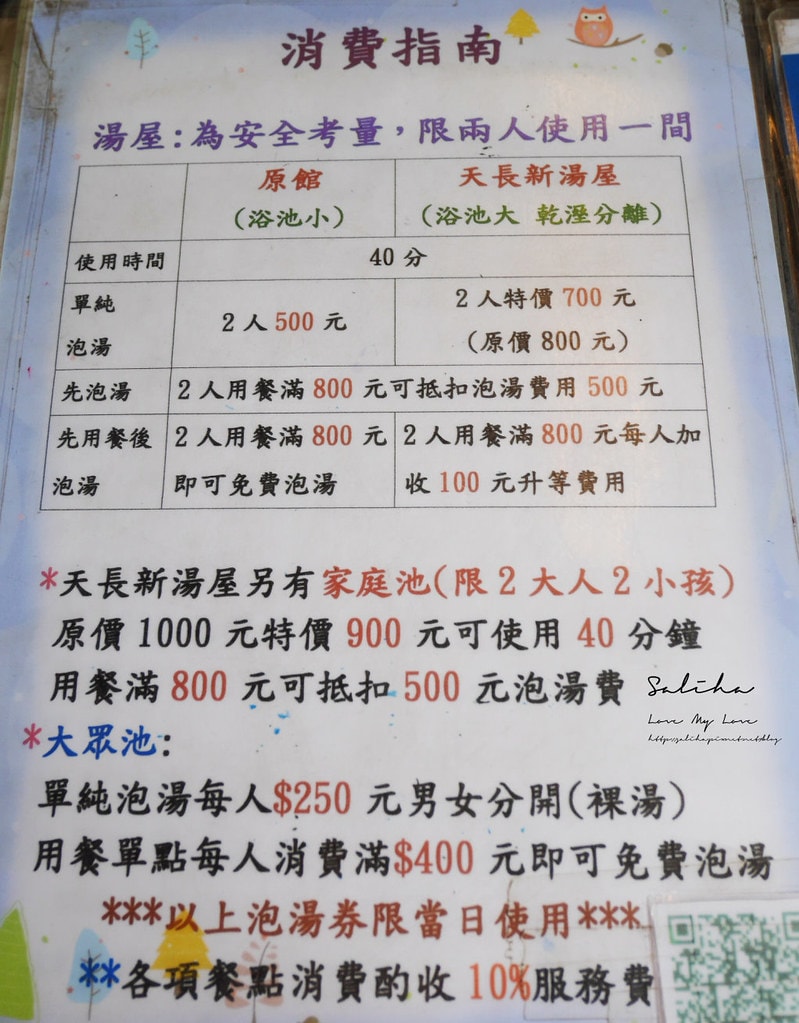 消費指南
湯屋:為安全考量,限兩人使用一間
原館 天長新湯屋
(浴池小) (浴池大 乾溼分離)
使用時間 40 分
單純 2 人特價 700 元
2 人 500 元
泡湯 (原價 800 元)
先泡湯 2 人用餐滿 800 元可抵扣泡湯費用 500 元
先用餐後 2 人用餐滿 800 元 2 人用餐滿 800 元每人加
泡湯 即可免費泡湯 收 100 元升等費用
*天長新湯屋另有家庭池(限 2 大人 2 小孩)
原價 1000 元特價 900 元可使用 40 分鐘
用餐滿 800 元可抵扣 500 元泡湯費
Saliha
Love My Love
*大眾池:
單純泡湯每人$250 元男女分開(裸湯)
用餐單點每人消費滿$400 元即可免費泡湯
***以上泡湯券限當日使用***
**各項餐點消費酌收 10%服務費